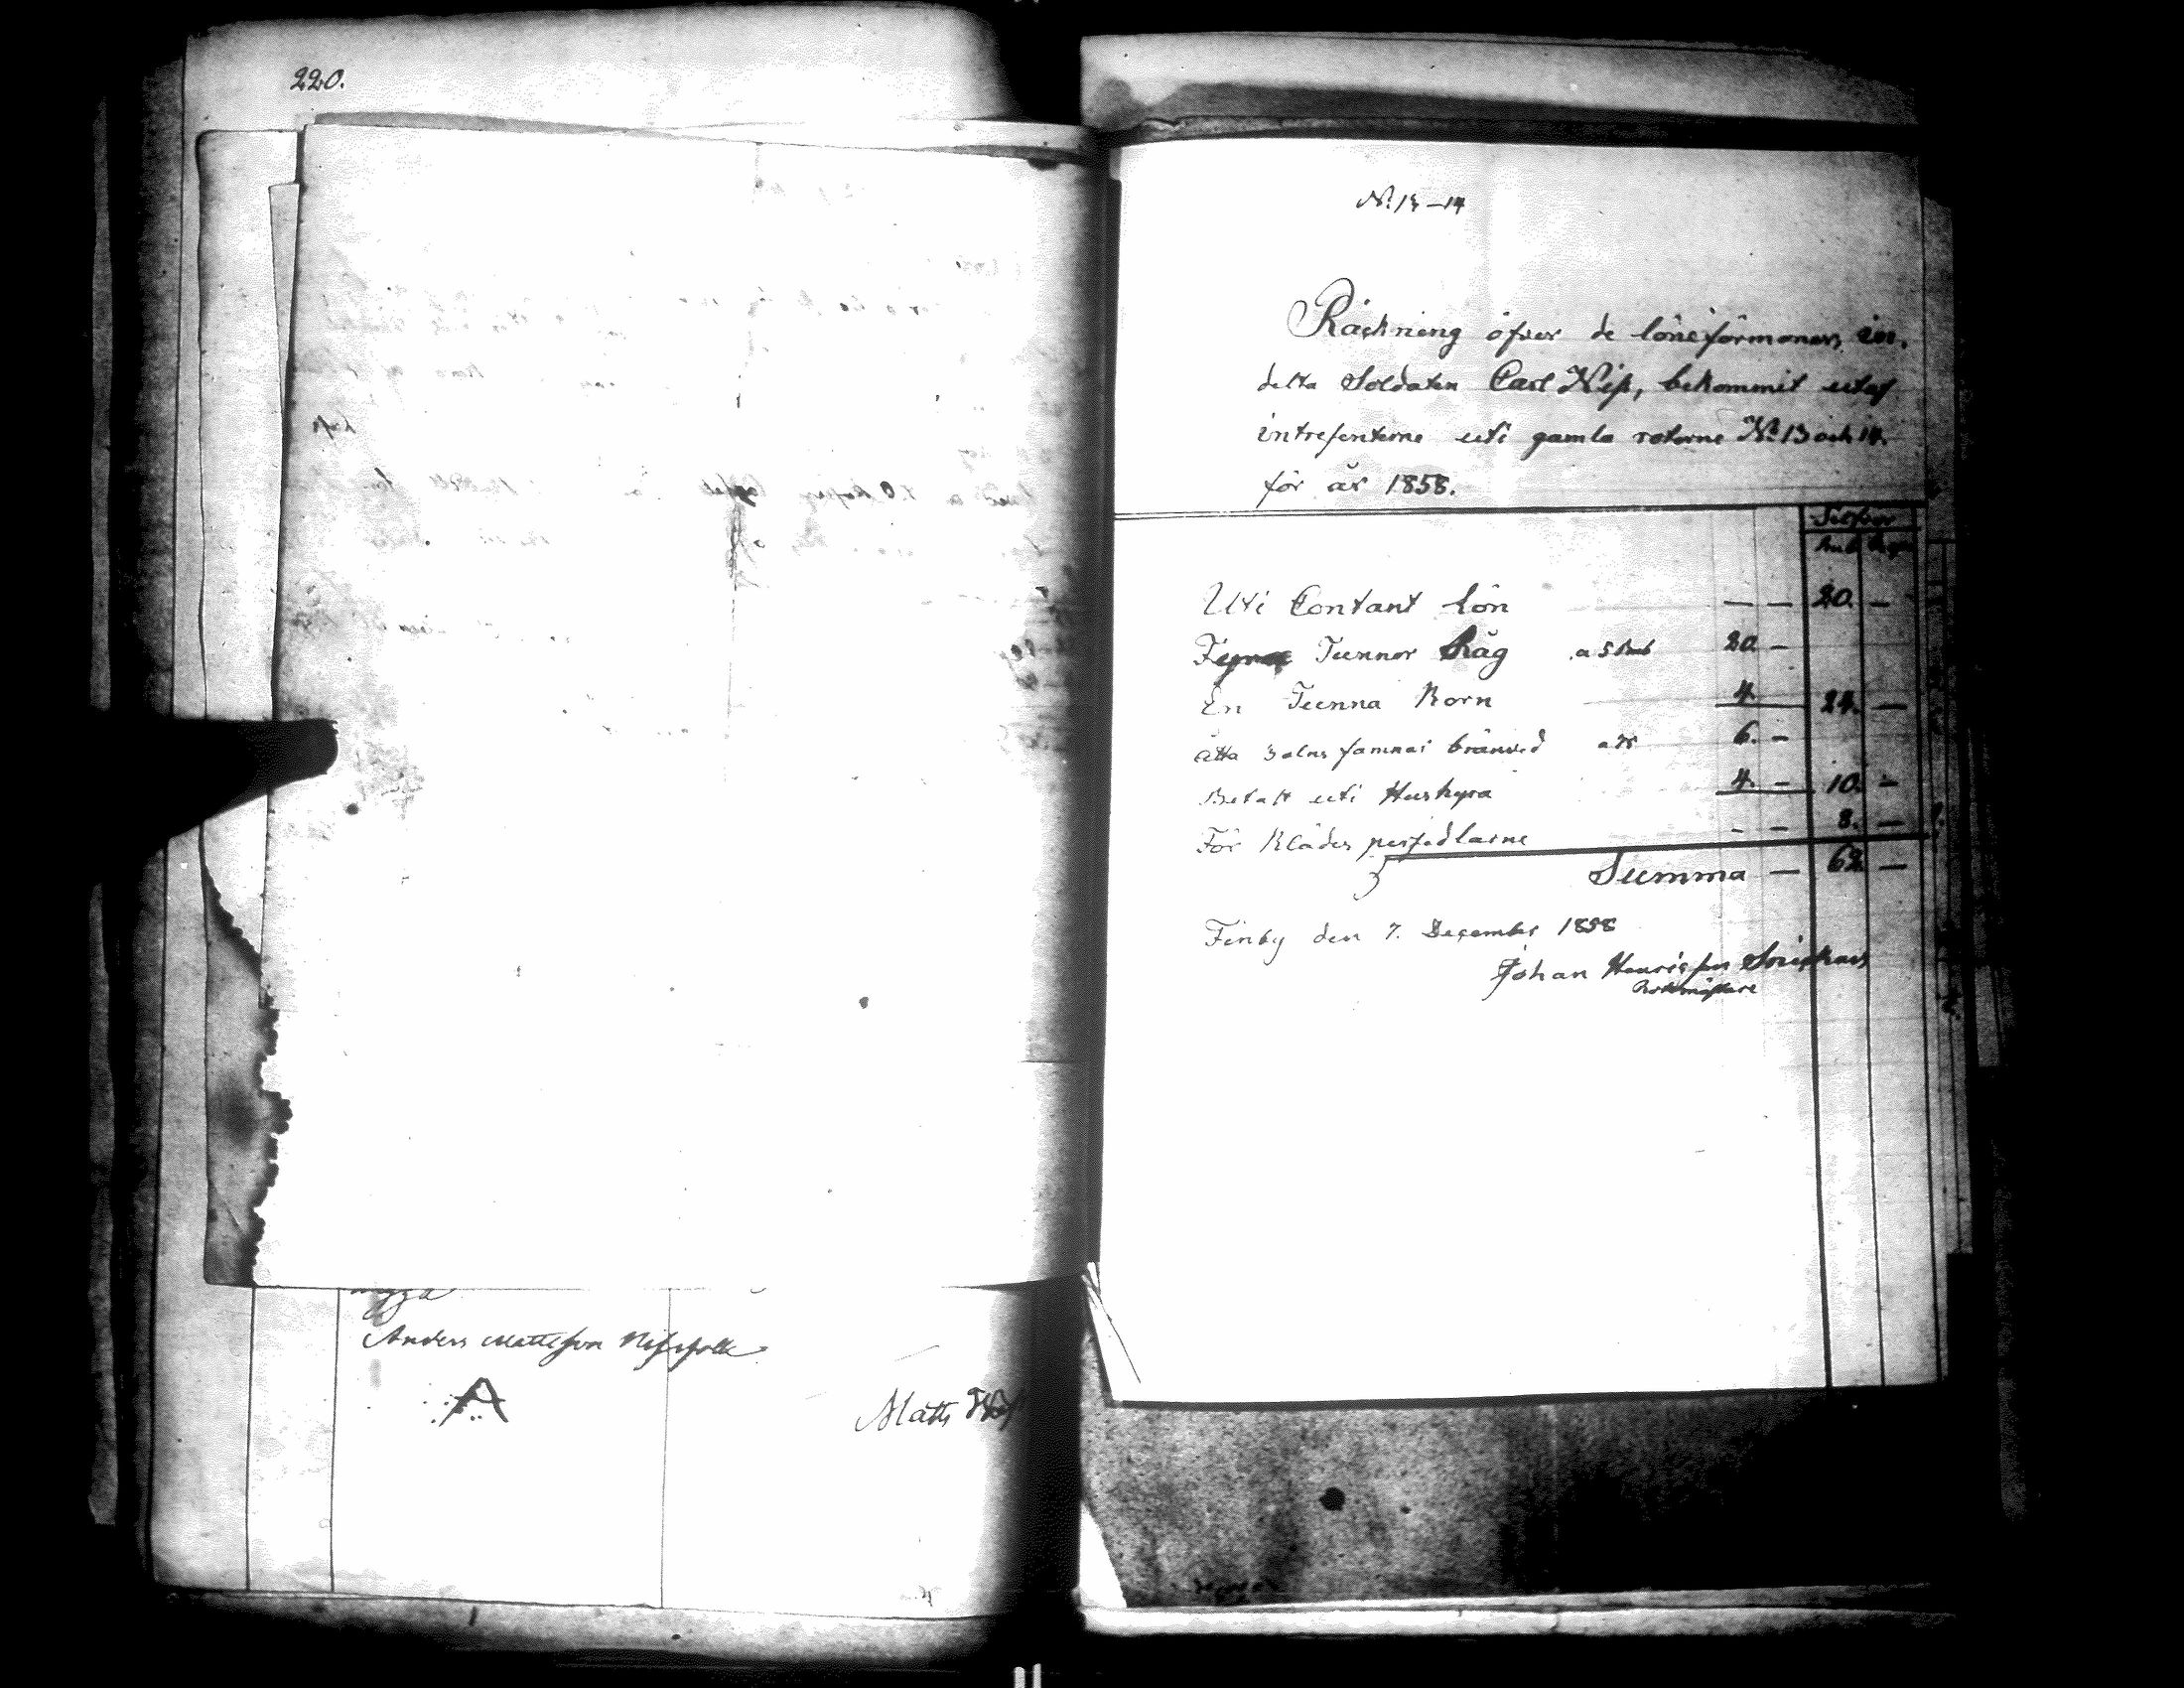 220.
Anders Mattsson Nissfolk
A
Matts
No 13–14
Räckning öfver de löneförmoner, in,
delta Soldaten Carl Niss, bekommit utaf
intressenterne uti gamla rotorne No 13 och 14.
för år 1858.
Silfver
Rub Kop
Uti Contant lön — — 20. —
Fyra Tunnor Råg a 5 Rub 20 —
En Tunna Korn 4. 24. —
åtta 3 alns famnar bränved a 75 6. —
Betalt uti Hushyra 4. — 10. —
För Kläders persedlarne – – 8. —
Summa — 62 —
Finby den 7. December 1858
Johan Henricsson
Rotemästare